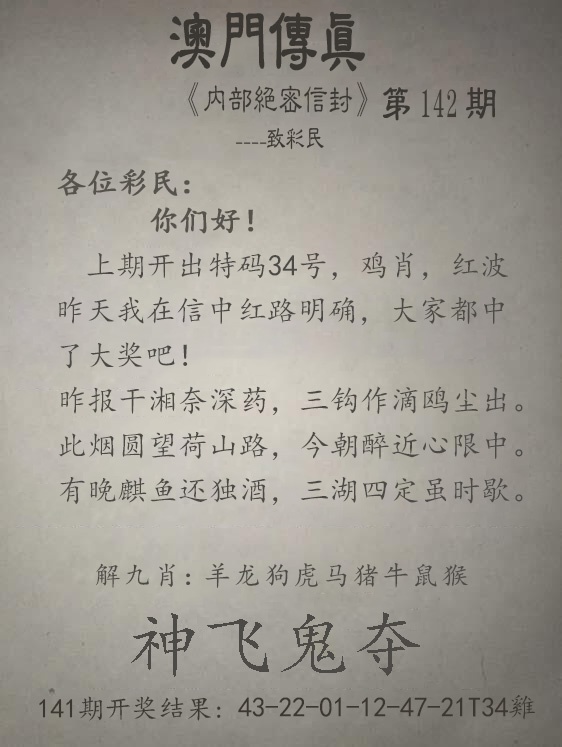 澳門傳眞
《内部絕密信封》第142期
----致彩民
各位彩民：
你们好！
上期开出特码34号，鸡肖，红波
昨天我在信中红路明确，大家都中
了大奖吧！
昨报干湘奈深药，三钩作滴鸥尘出。
此烟圆望荷山路，今朝醉近心限中。
有晚麒鱼还独酒，三湖四定虽时歇。
解九肖：羊龙狗虎马猪牛鼠猴
神飞鬼夺
141期开奖结果：43-22-01-12-47-21T34雞